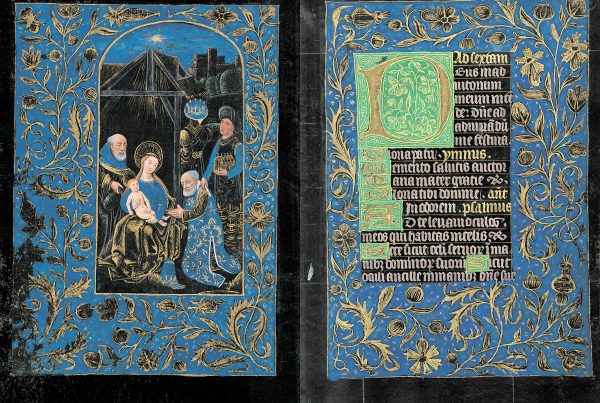 Ad sextam
Deus in ad
iutorium
meum inte
de: dñe ad
adiuuādū
me festina
Gloria patri. ymnus.
Memento salutis auctor
Maria mater gratie &c.
Gloria tibi domine. añe
In odorem. psalmus
Ad te leuaui oculos
meos qui habitas in celis
Ecce sicut oculi seruorū in ma
nibus dominorū suorū Sicut
oculi ancille in manibus domine sue